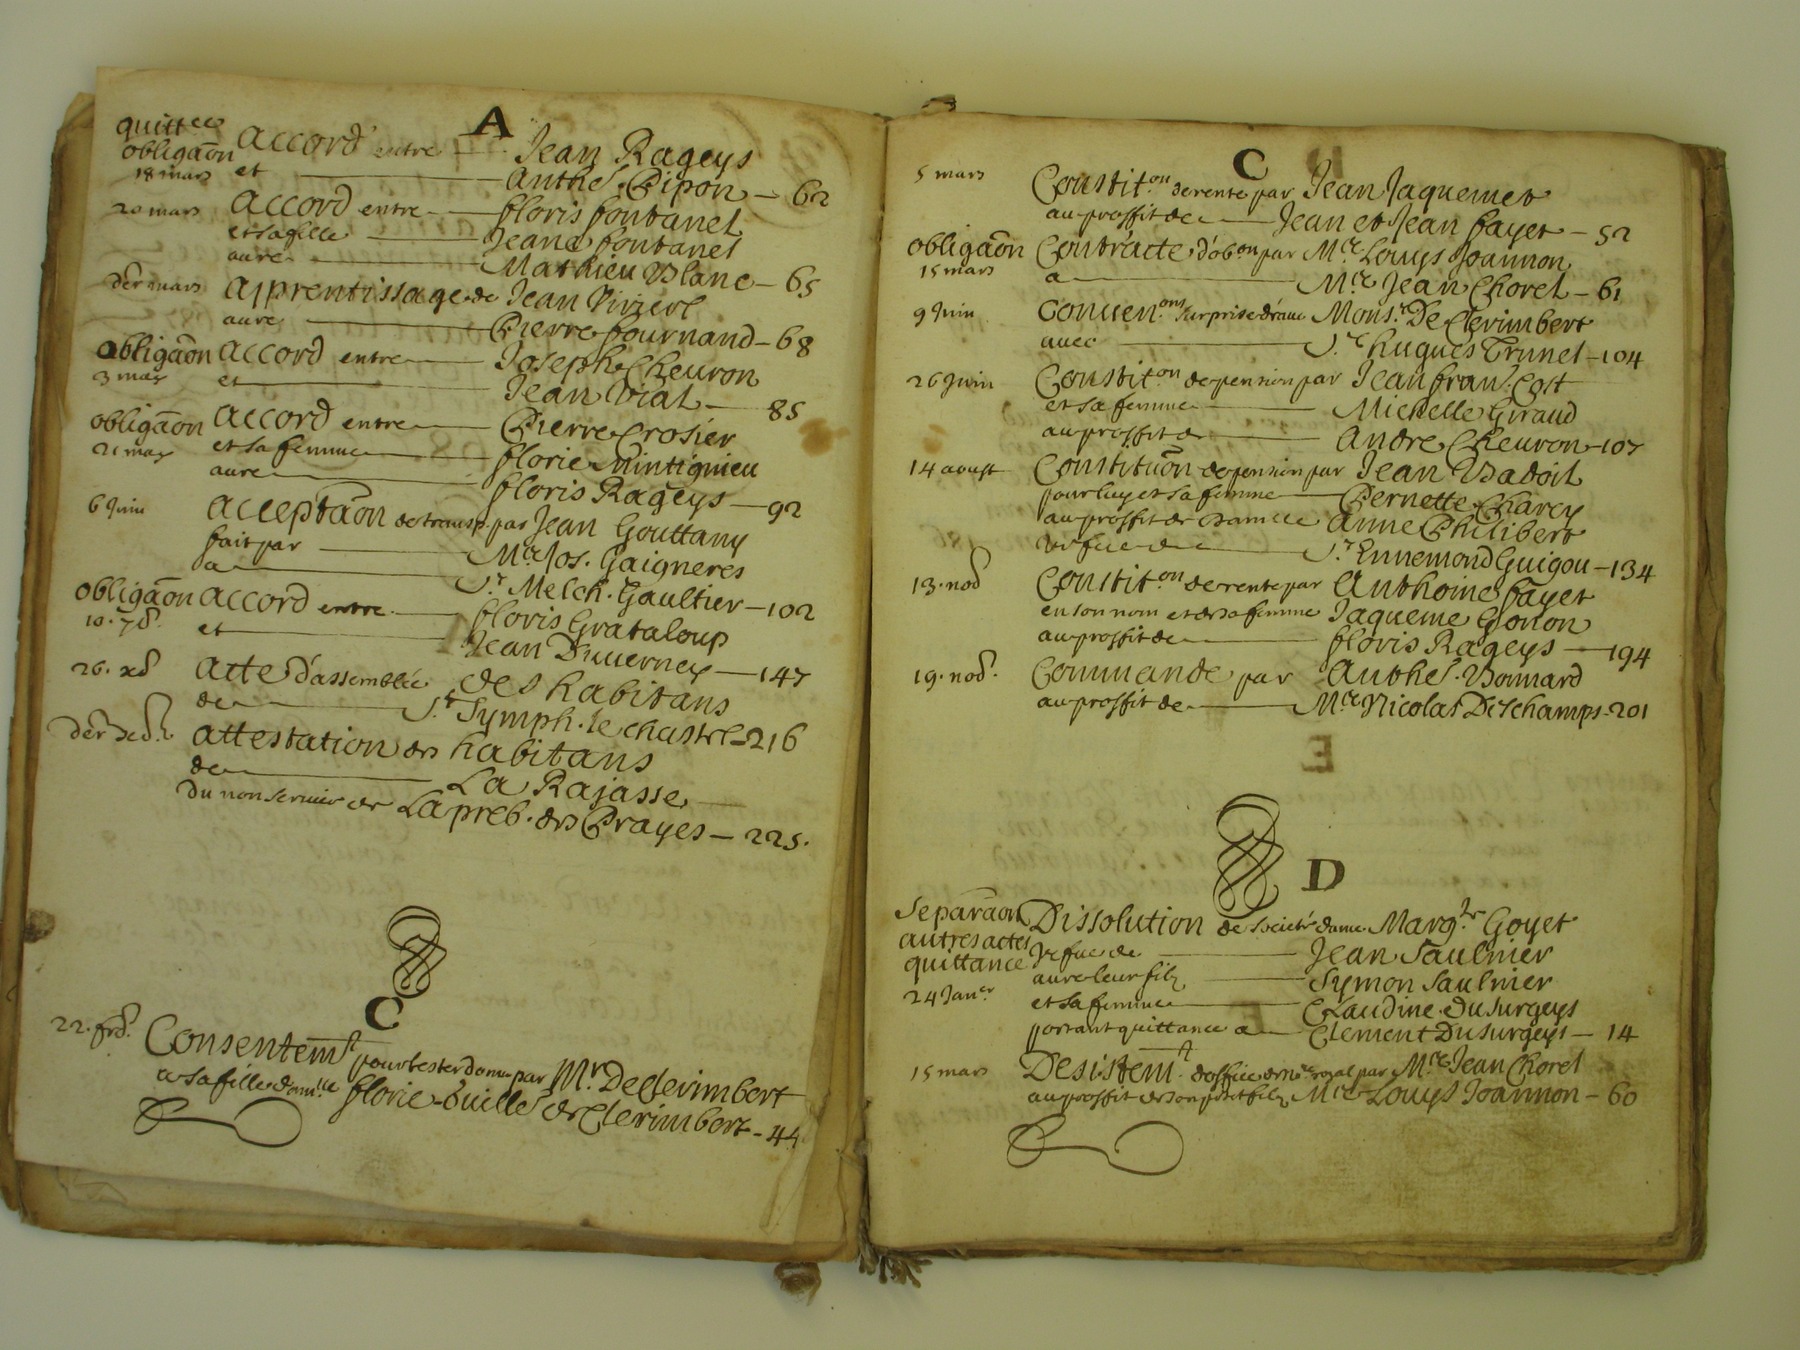 A
quittce Accord entre Jean Rageys
obligaôn
18 mars et Anthe. Pipon - 62
20 mars Accord entre floris fontanel
et sa fille Jeane fontanel
avec Mathieu Blanc - 65
der mars Apprentissage de Jean Vivierl
avec Pierre fournand - 68
obligaôn Accord entre Joseph Cheuron
3 may et Jean Vial - 85
obligaôn Accord entre Pierre Crosier
21 may et sa femme florie Mintignieu
avec floris Rageys - 92
6 Juin Acceptaôn de transp. par Jean Gouttany
fait par Mre Jos. Gaigneres
a Sr Melch. Gaultier - 102
obligaôn Accord entre floris Grataloup
10. 7b. et Jean Duuerney - 147
26. xb Atte d'assemblée des habitans
de St Symph. le chastel - 216
der Attestation des habitans
de La Rajasse
du non seruice de La preb. des Prayes - 225.
C
22. frb. Consentemt pour tester donné par Mr De Clerimbert
a sa fille damlle florie de Clerimbert - 44
C
5 mars Constiton de rente par Jean Jaquemet
au proffit de Jean et Jean fayet - 52
obligaôn Contracte d'obon par Mre Louys Joannon
15 mars a Mre Jean Chorel - 61
9 Juin Conuenons sur prise d'eau Monsr De Clerimbert
auec Sr hugues Trunel - 104
26 Juin Constiton de pension par Jean fran. Cost
et sa femme Michelle Giraud
au proffit de Andre Cheuron - 107
14 aoust Constituôn de pension par Jean Badoil
pour luy et sa femme Pernette Charey
au proffit de damlle Anne Philibert
vefue de Sr Ennemond Guigou - 134
13. nob Constiton de rente par Anthoine fayet
en son nom et de sa femme Jaqueme Gonon
au proffit de floris Rageys - 194
19. nob. Commande par Anthe. Bonnard
au proffit de Mre Nicolas Deschamps - 201
D
Separaôn Dissolution de societé dame Margte Goyet
autres actes vefue de Jean Saulnier
quittance avec leur filz Symon Saulnier
24 Janer et sa femme Claudine Dusurgeys
portant quittance a Clement Dusurgeys - 14
15 mars Desistemt d'office de nre royal par Mre Jean Chorel
au proffit de son petit filz Mre Louys Joannon - 60